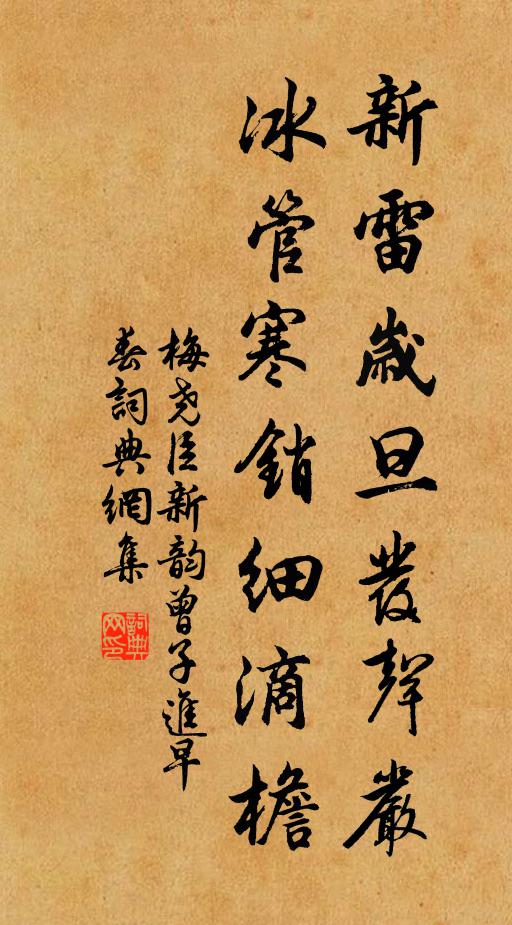 新雷歲旦發聲嚴
冰管寒銷細滴檐
梅堯臣新韵曾子進早
春詞典網集
詞典网印